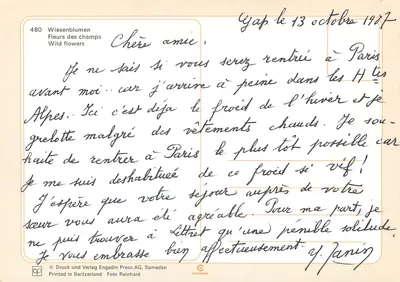 480 Wiesenblumen
Fleurs des champs
Wild flowers
Gap le 13 octobre 1987
Chère amie,
Je ne sais si vous serez rentrée à Paris
avant moi.. car j'arrive à peine dans les Htes
Alpes. Ici c'est déja le froid de l'hiver et je
grelotte malgré des vêtements chauds. Je sou-
haite de rentrer à Paris le plus tôt possible car
je me suis deshabituée de ce froid si vif!
J'espère que votre séjour auprès de votre
sœur vous aura été agréable. Pour ma part, je
ne puis trouver à Lettret qu'une pénible solitude.
Je vous embrasse bien affectueusement. Y. Janin
© Druck und Verlag Engadin Press AG, Samedan
Printed in Switzerland Foto Reinhard